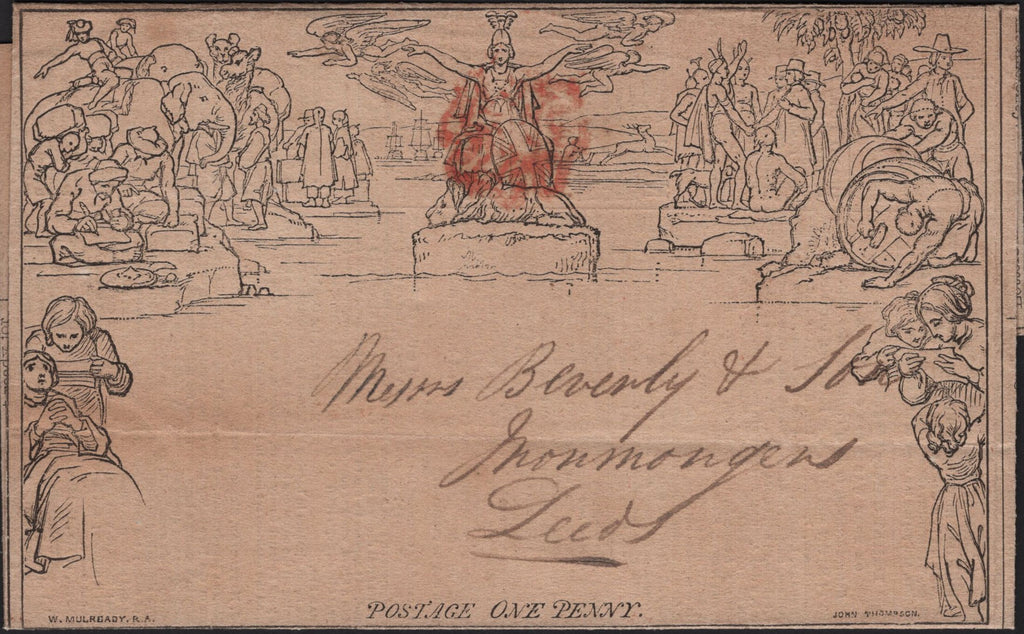 Messrs Beverly & Son
Ironmongers
Leeds
POSTAGE ONE PENNY.
W. MULREADY. R.A.
JOHN THOMPSON.